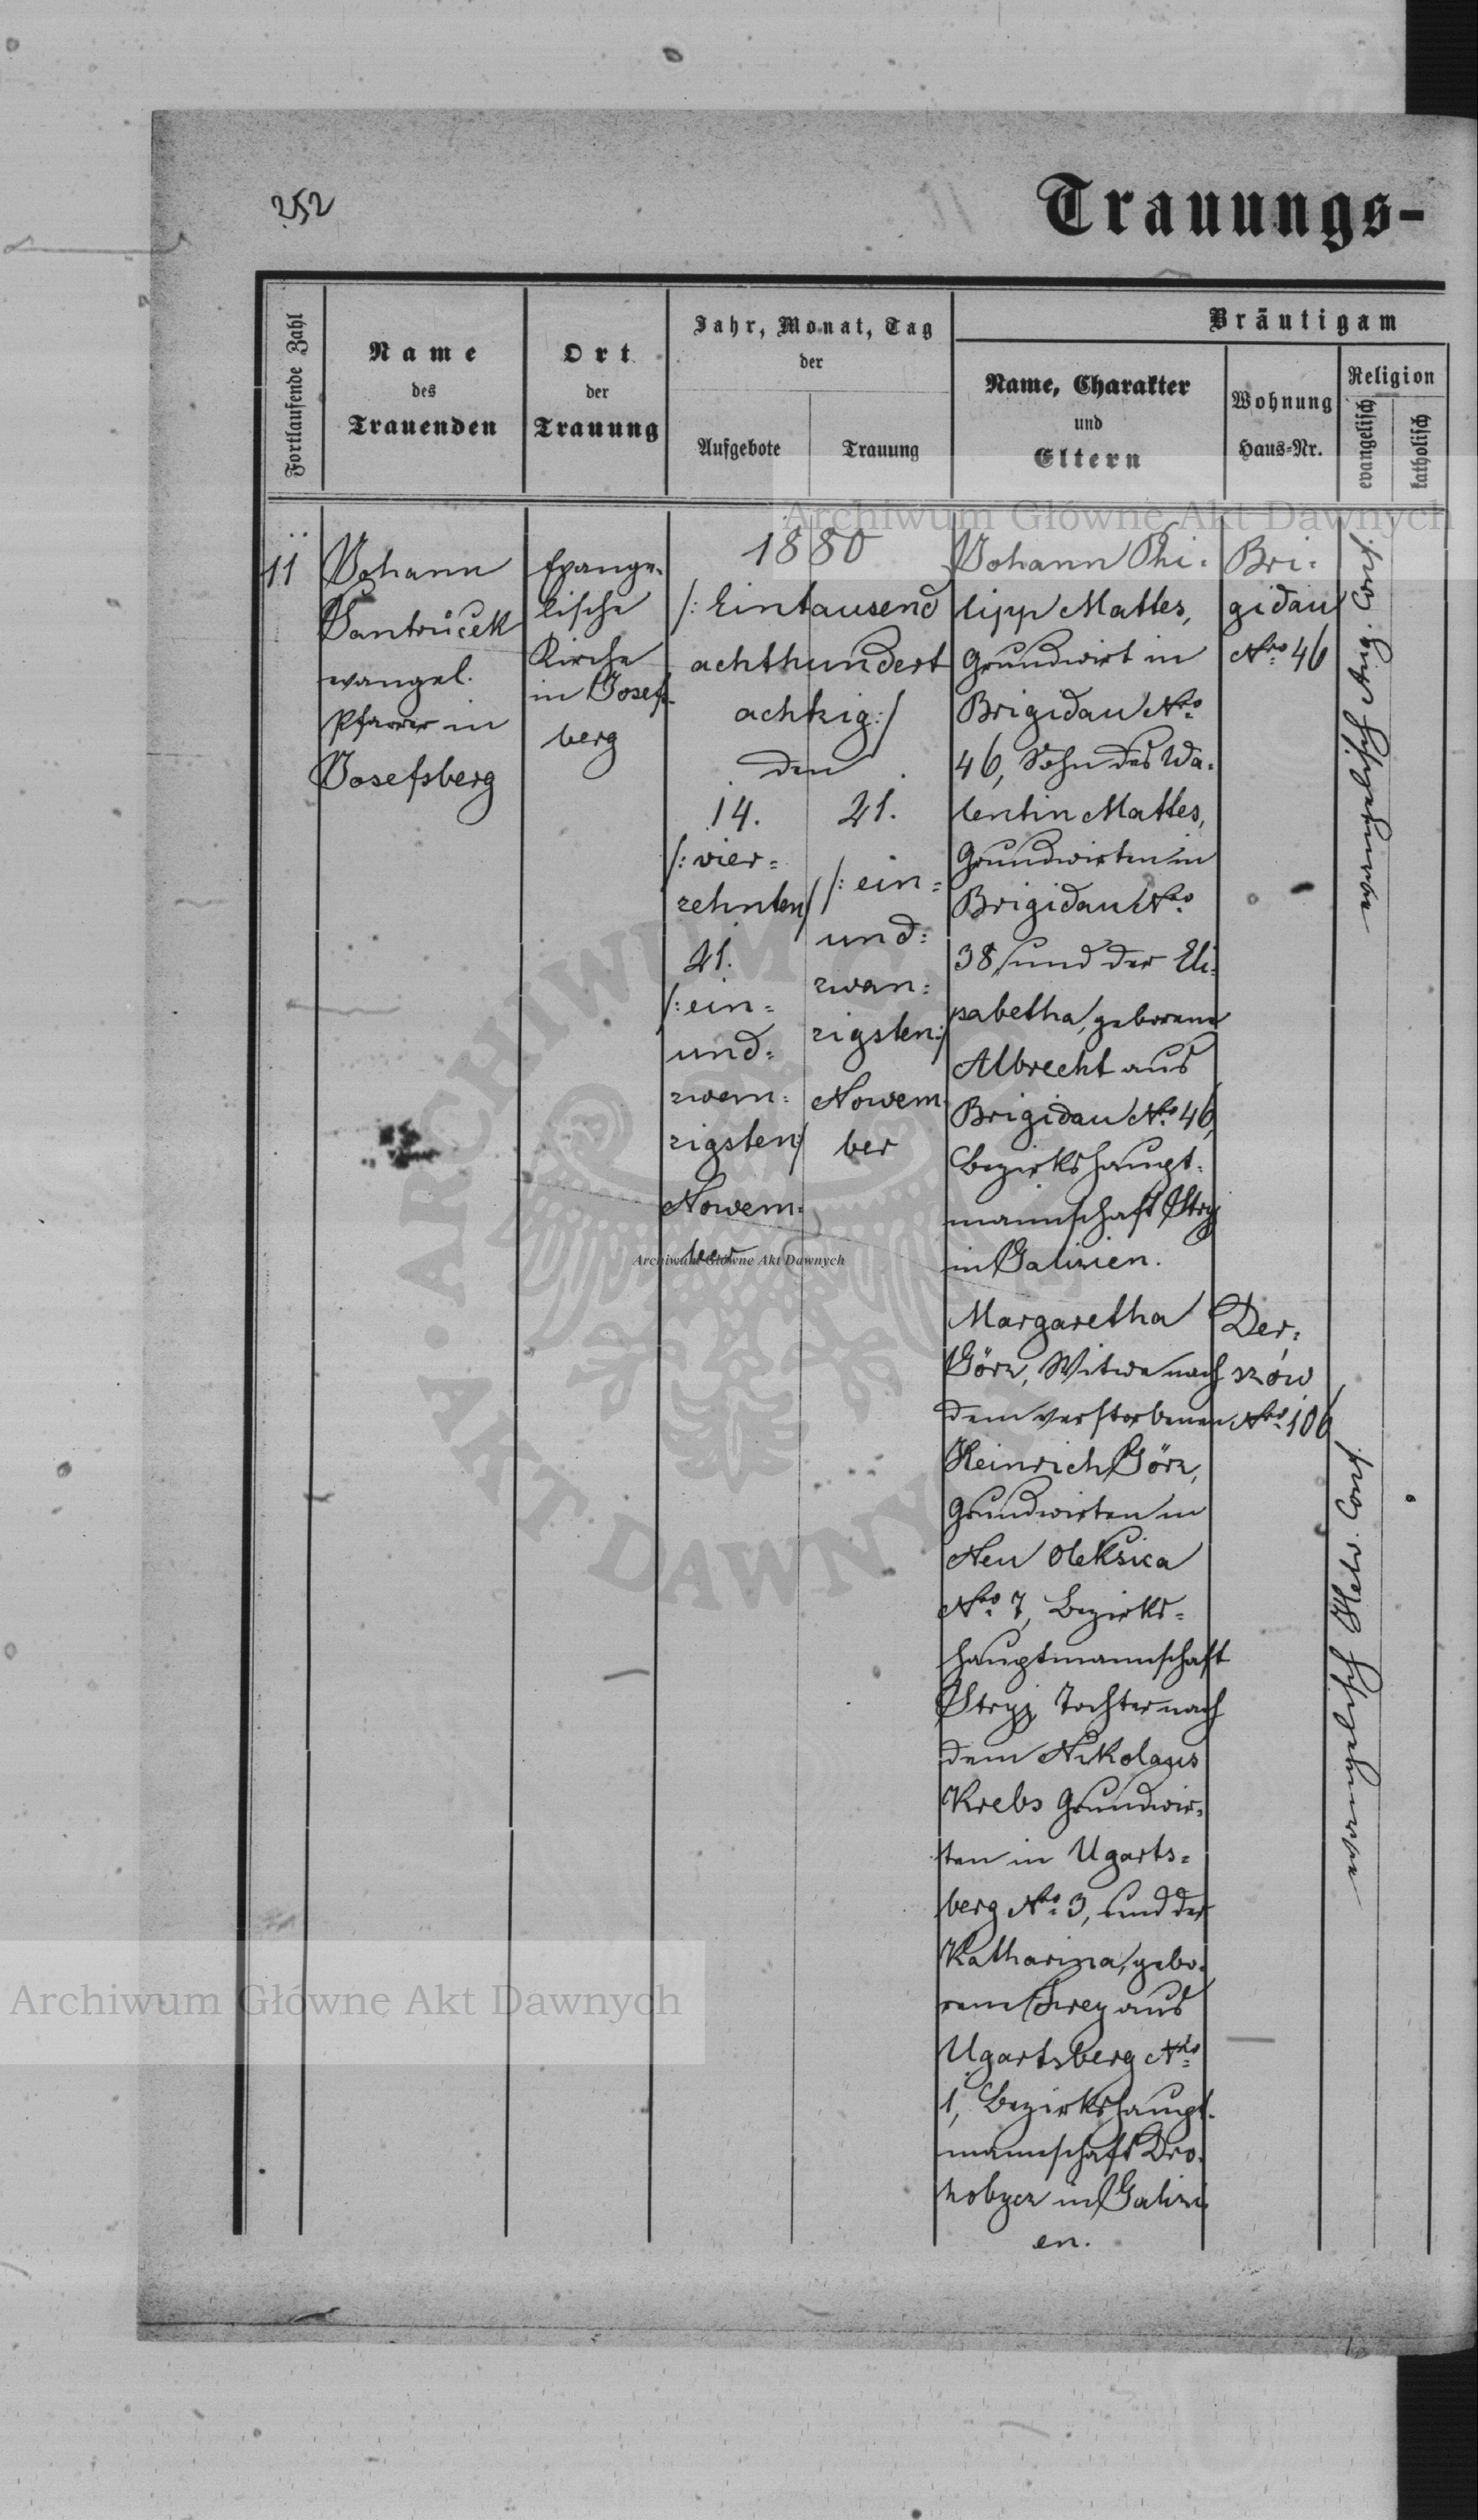 252
Trauungs-
Fortlaufende Zahl
Name
des
Trauenden
Ort
der
Trauung
Jahr, Monat, Tag
der
Aufgebote
Trauung
Bräutigam
Name, Charakter
und
Eltern
Wohnung
Haus-Nr.
Religion
evangelisch
katholisch
Archiwum Główne Akt Dawnych
11
Johann
Santrůček
evangel.
Pfarrer in
Josefsberg
Evange-
lische
Kirche
in Josefs-
berg
1880
/: Eintausend
achthundert
achtzig :/
den
14.
/: vier=
zehnten/
21.
/: ein=
und=
zwan=
zigsten:/
Novem=
ber
21.
/: ein=
und=
zwan=
zigsten:/
Novem-
ber
Johann Phi-
lipp Mattes,
Grundwirt in
Brigidau Nro
46, Sohn des Va-
lentin Mattes,
Grundwirten in
Brigidau Nro
38, und der Eli-
sabetha, geborene
Albrecht aus
Brigidau Nro 46,
Bezirkshaupt-
mannschaft Stryj
in Galizien.
Bri-
gidau
Nro 46
evangelisch Aug. Conf.
Margaretha
Görz, Witwe nach
dem verstorbenen
Heinrich Görz,
Grundwirten in
Neu Oleksica
Nro 7, Bezirks=
hauptmannschaft
Stryj, Tochter nach
dem Nikolaus
Krebs Grundwir-
ten in Ugarts=
berg Nro 3, und der
Katharina, gebo-
rene Frey aus
Ugartsberg Nro
1, Bezirkshaupt-
mannschaft Dro-
hobycz in Galizi-
en.
Der-
żów
Nro 106
evangelisch Helv. Conf.
Archiwum Główne Akt Dawnych
ARCHIWUM
AKT DAWNYCH
Archiwum Główne Akt Dawnych